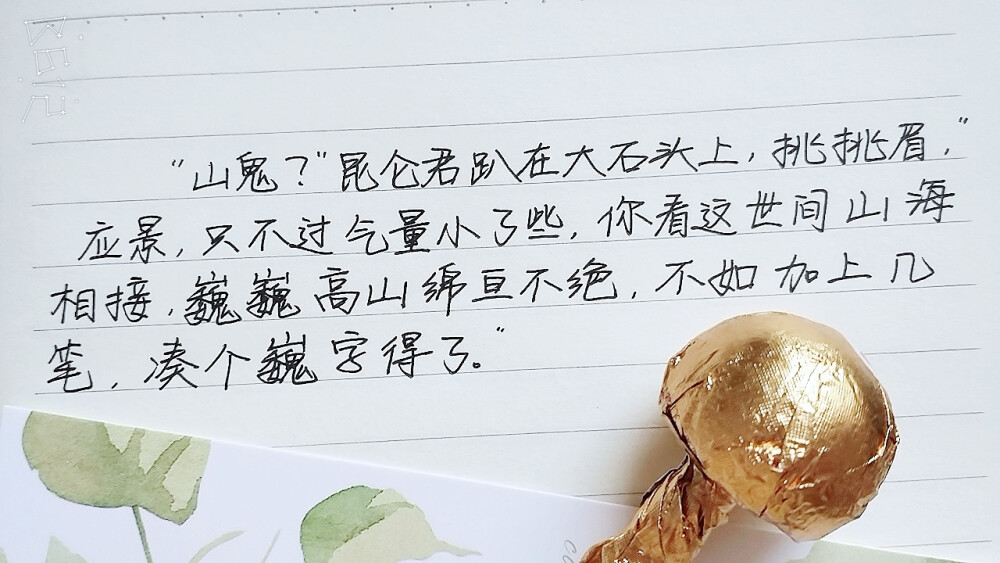 “山鬼？”昆仑君趴在大石头上，挑挑眉，“
应景，只不过气量小了些，你看这世间山海
相接，巍巍高山绵亘不绝，不如加上几
笔，凑个巍字得了。”